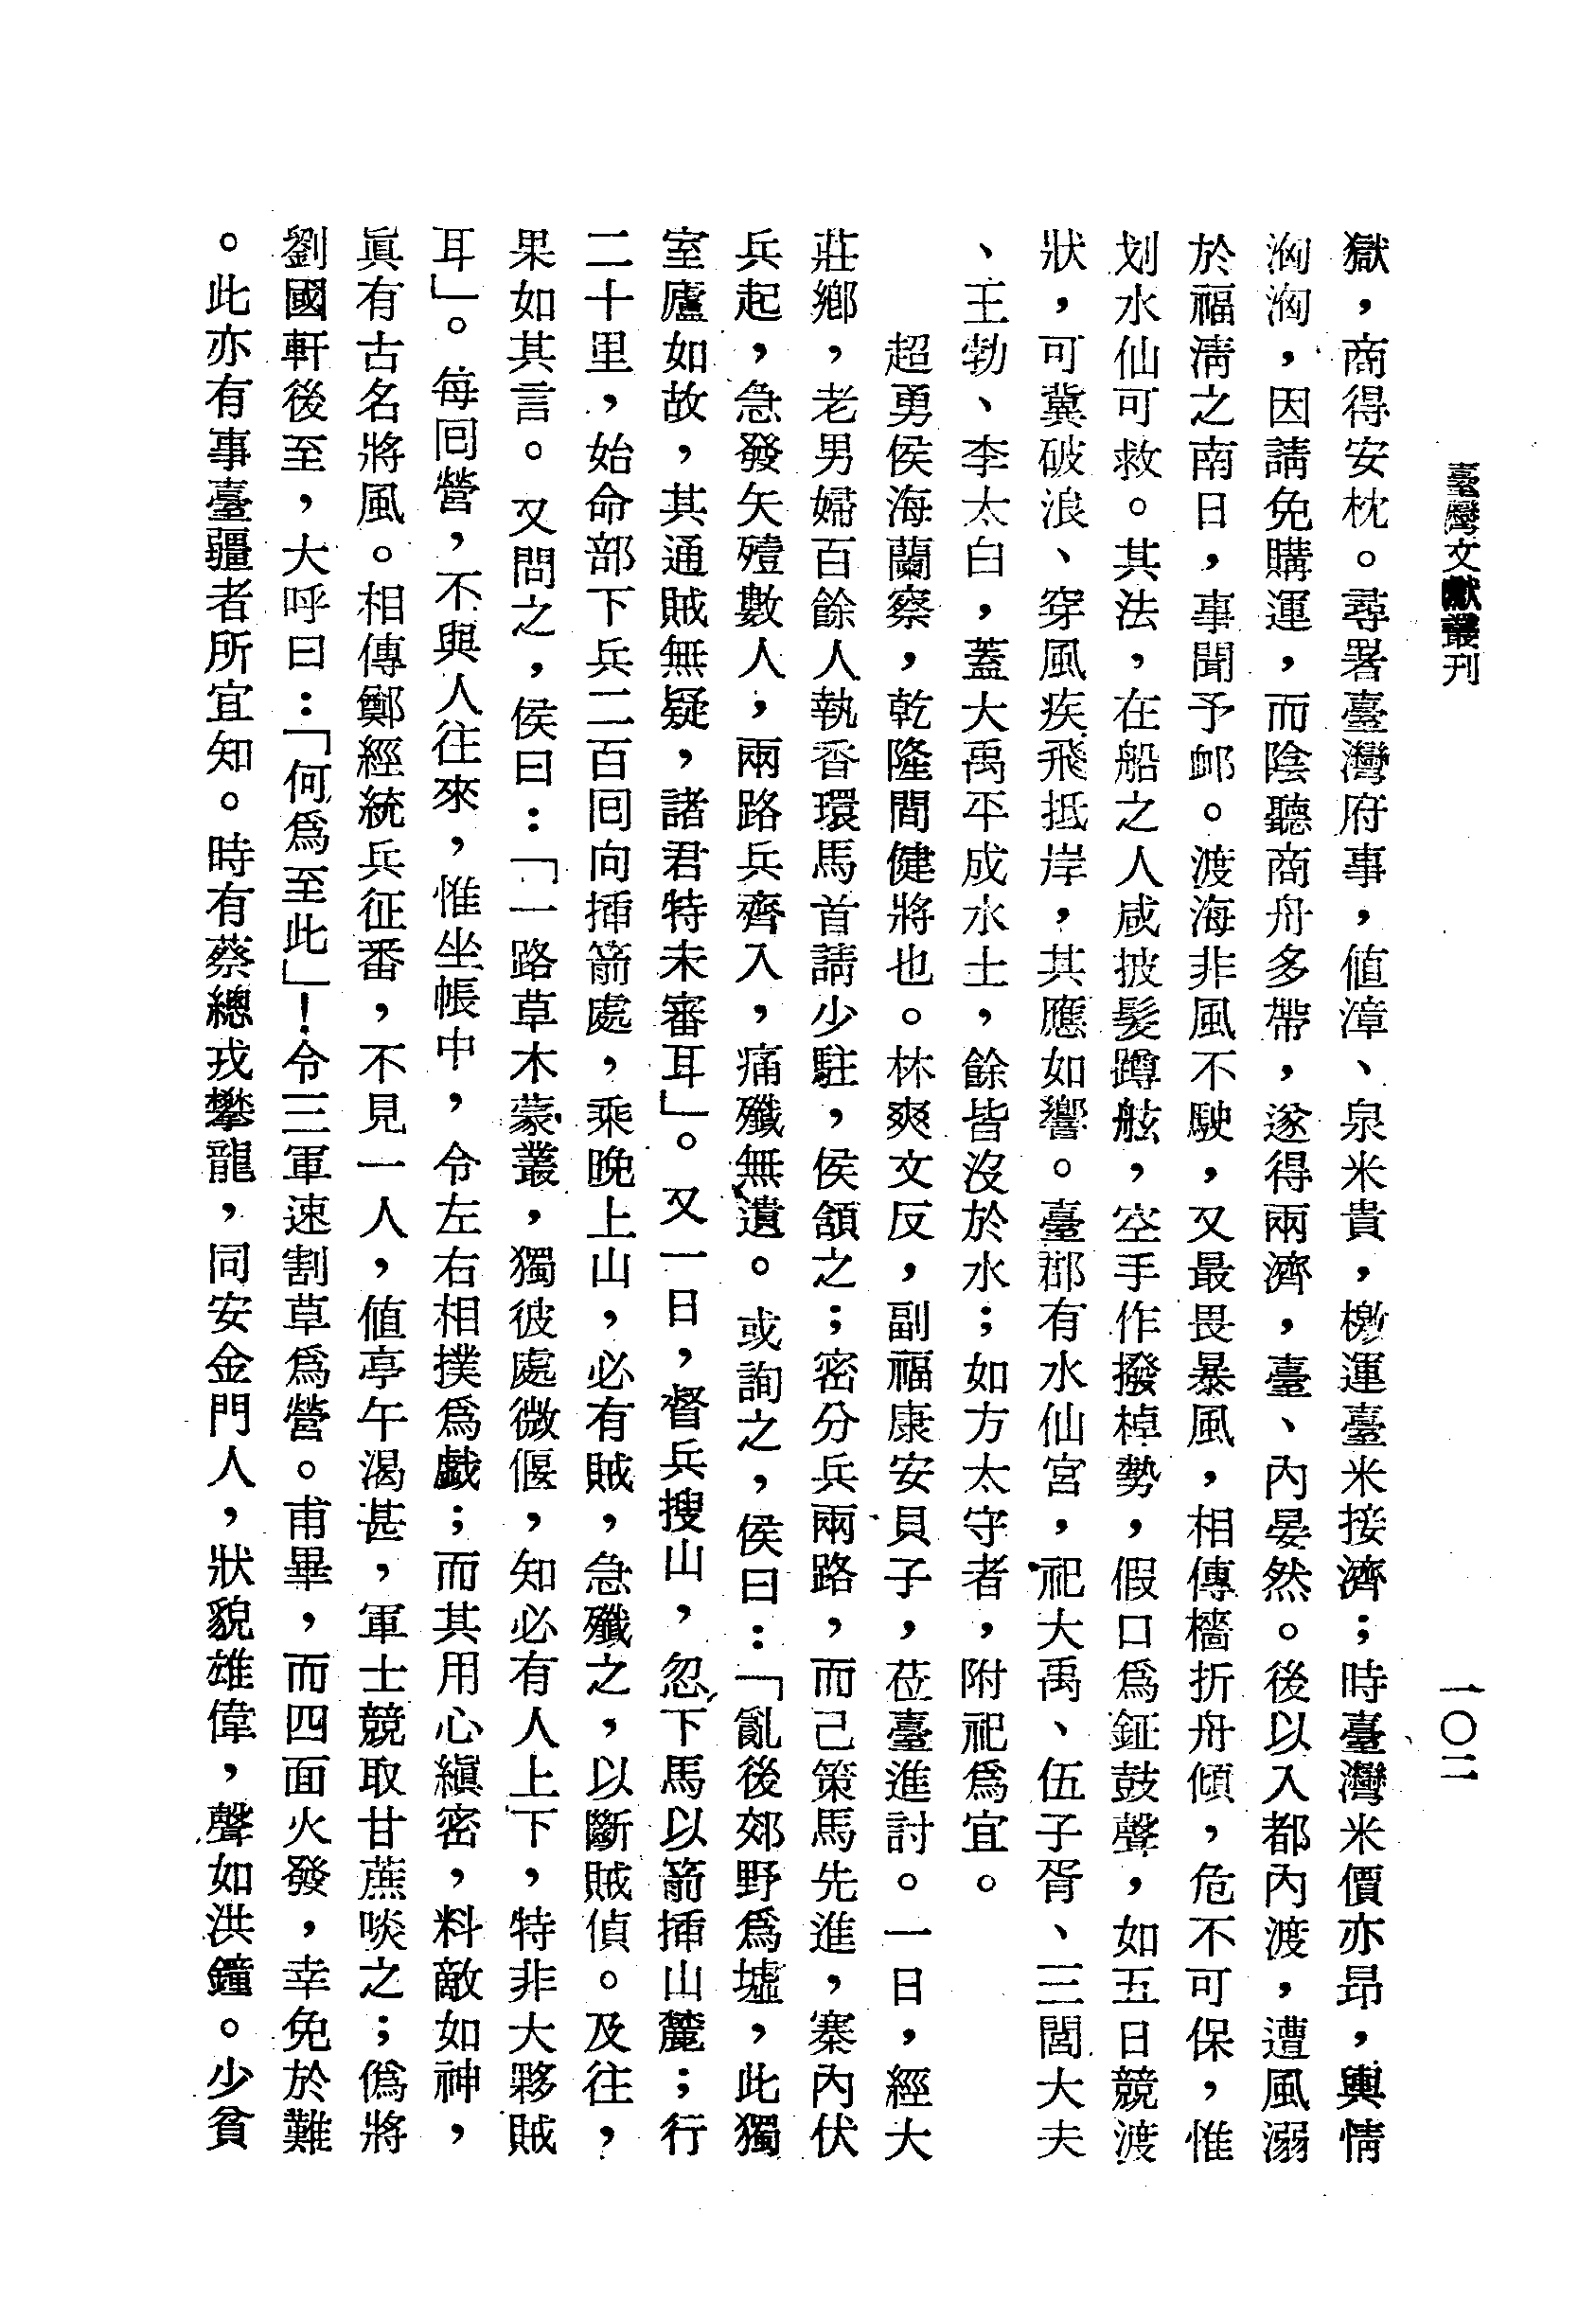 臺灣文獻叢刊
一〇二
獄，商得安枕。尋署臺灣府事，値漳、泉米貴，檄運臺米接濟；時臺灣米價亦昂，輿情
洶洶，因請免購運，而陰聽商舟多帶，遂得兩濟，臺、內晏然。後以入都內渡，遭風溺
於福淸之南日，事聞予卹。渡海非風不駛，又最畏暴風，相傳檣折舟傾，危不可保，惟
划水仙可救。其法，在船之人咸披髮蹲舷，空手作撥棹勢，假口爲鉦鼓聲，如五日競渡
狀，可冀破浪、穿風疾飛抵岸，其應如響。臺郡有水仙宮，祀大禹、伍子胥、三閭大夫
、王勃、李太白，蓋大禹平成水土，餘皆沒於水；如方太守者，附祀爲宜。
超勇侯海蘭察，乾隆間健將也。林爽文反，副福康安貝子，莅臺進討。一日，經大
莊鄕，老男婦百餘人執香環馬首請少駐，侯頷之；密分兵兩路，而己策馬先進，寨內伏
兵起，急發矢殪數人，兩路兵齊入，痛殲無遺。或詢之，侯曰：「亂後郊野爲墟，此獨
室廬如故，其通賊無疑，諸君特未審耳」。又一日，督兵搜山，忽下馬以箭揷山麓；行
二十里，始命部下兵二百囘向揷箭處，乘晚上山，必有賊，急殲之，以斷賊偵。及往，
果如其言。又問之，侯曰：「一路草木蒙叢，獨彼處微偃，知必有人上下，特非大夥賊
耳」。每囘營，不與人往來，惟坐帳中，令左右相撲爲戲；而其用心縝密，料敵如神，
眞有古名將風。相傳鄭經統兵征番，不見一人，値亭午渴甚，軍士競取甘蔗啖之；僞將
劉國軒後至，大呼曰：「何爲至此」！令三軍速割草爲營。甫畢，而四面火發，幸免於難
。此亦有事臺疆者所宜知。時有蔡總戎攀龍，同安金門人，狀貌雄偉，聲如洪鐘。少貧